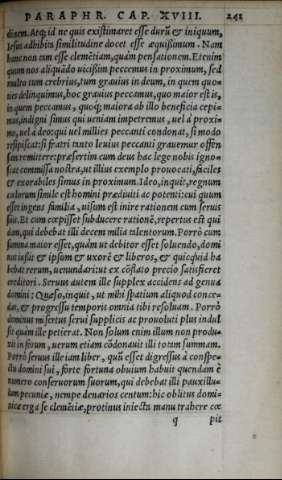 PARAPHR. CAP. XVIII. 241
ditem. Atq; id ne quis existimaret esse durũ & iniquum,
Iesus adhibita similitudine docet esse æquissimum. Nam
hanc non tam esse clemẽtiam, quàm pensationem. Etenim
quum nos aliquãdo uicissim peccemus in proximum, sed
multo tum crebrius, tum grauius in deum, in quem quo-
ties delinquimus, hoc grauius peccamus, quo maior est is,
in quem peccamus, quoq; maiora ab illo beneficia cepi-
mus, indigni simus qui ueniam impetremus, uel à proxi-
mo, uel à deo: qui uel millies peccanti condonat, si modo
resipiscat: si fratri tanto leuius peccanti grauemur offen
sam remittere: præsertim cum deus hac lege nobis igno-
scat commissa nostra, ut illius exemplo prouocati, faciles
& exorabiles simus in proximum. Ideo, inquit, regnum
cælorum simile est homini prædiuiti ac potenti: cui quum
esset ingens familia, uisum est inire rationem cum seruis
suis. Et cum cœpisset subducere rationẽ, repertus est qui
dam, qui debebat illi decem milia talentorum. Porrò cum
summa maior esset, quàm ut debitor esset soluendo, domi
nus iussit & ipsum & uxorẽ & liberos, & quicquid ha
bebat rerum, uenundari: ut ex cõflato precio satisfieret
creditori. Seruus autem ille supplex accidens ad genua
domini: Quæso, inquit, ut mihi spatium aliquod conce-
das, & progressu temporis omnia tibi resoluam. Porrò
dominus misertus serui supplicis ac proboui plus indul
sit quàm ille petierat. Non solum enim illum non produ-
xit in forum, uerum etiam cõdonauit illi totam summam.
Porrò seruus ille iam liber, quũ esset digressus à conspe-
ctu domini sui, forte fortuna obuium habuit quendam è
numero conseruorum suorum, qui debebat illi pauxillu-
lum pecuniæ, nempe denarios centum: hic oblitus domi-
nicæ erga se clemẽtiæ, protinus iniecta manu trahere cœ
q pit